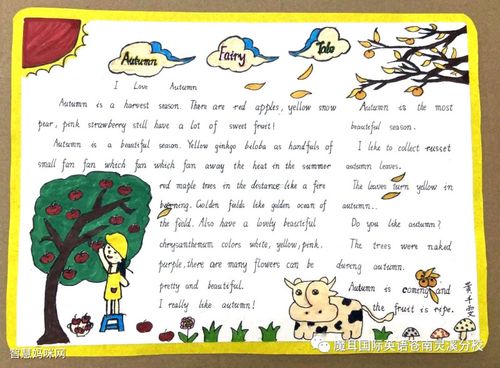 Autumn Fairy Tale
I Love Autumn
Autumn is a harvest season. There are red apples, yellow snow
pear, pink strawberry still have a lot of sweet fruit!
Autumn is a beautiful season. Yellow ginkgo biloba as handfuls of
small fan fan which fan which fan away the heat in the summer
red maple trees in the distance like a fire
burning. Golden fields like golden ocean of
the field. Also have a lovely beautiful
chrysanthemum colors white, yellow, pink.
purple, there are many flowers can be
pretty and beautiful.
I really like autumn!
Autumn is the most
beautiful season.
I like to collect russet
autumn leaves.
The leaves turn yellow in
autumn..
Do you like autumn?
The trees were naked
dureng autumn.
Autumn is coming and
the fruit is ripe.
黄千雯
智慧妈咪网
魔耳国际英语苍南灵溪分校